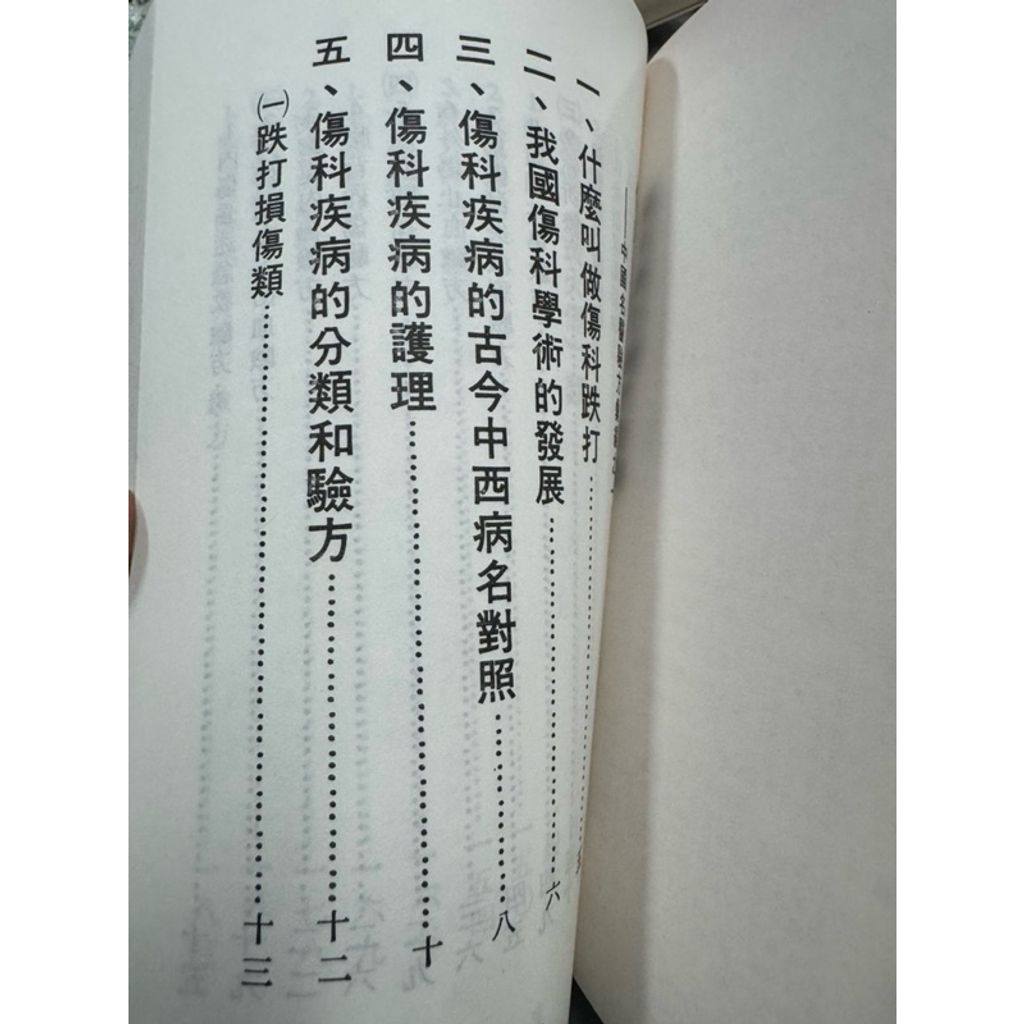 一、什麼叫做傷科跌打
二、我國傷科學術的發展……六
三、傷科疾病的古今中西病名對照……八
四、傷科疾病的護理……十
五、傷科疾病的分類和驗方……十二
㈠跌打損傷類……十三